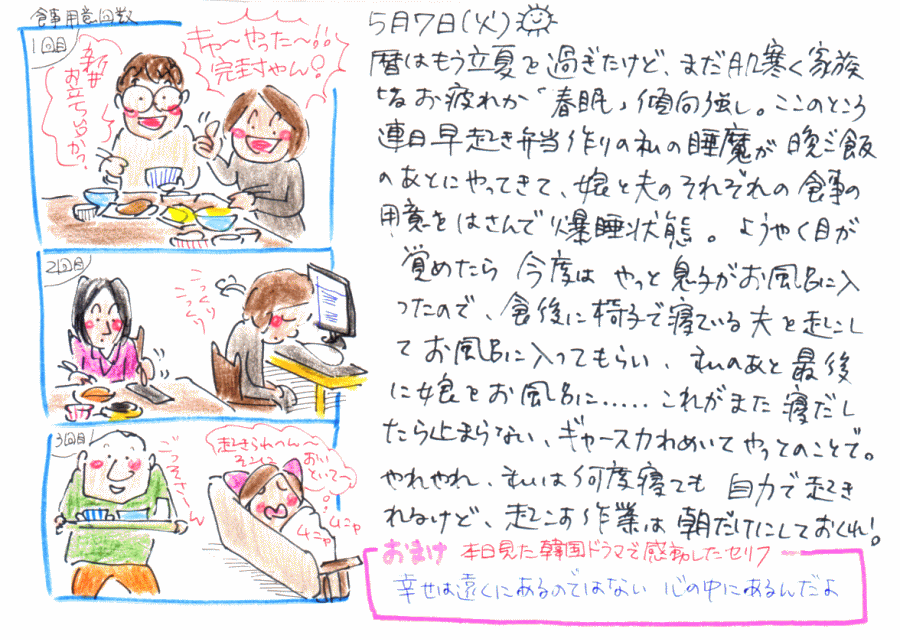 食事用意回数
1回目
新井
お立ちらしかっ
キャ〜やった〜!!
完封やん!
2回目
こっくり
こっくり
3回目
ごっそさ〜ん
起きられへ〜ん〜
そこに
おいといて〜
ムニャ
ムニャ
5月7日(火)
暦はもう立夏を過ぎたけど、まだ肌寒く家族
皆お疲れか「春眠」傾向強し。ここのところ
連日早起き弁当作りの私の睡魔が晩ご飯
のあとにやってきて、娘と夫のそれぞれの食事の
用意をはさんで爆睡状態。ようやく目が
覚めたら今度はやっと息子がお風呂に入
ったので、食後に椅子で寝ている夫を起こし
てお風呂に入ってもらい、私のあと最後
に娘をお風呂に……これがまた寝だし
たら止まらない、ギャースカわめいてやってのことで。
やれやれ、私は何度寝ても自力で起き
れるけど、起こす作業は朝だけにしておくれ!
おまけ 本日見た韓国ドラマで感動したセリフ
幸せは遠くにあるのではない 心の中にあるんだよ